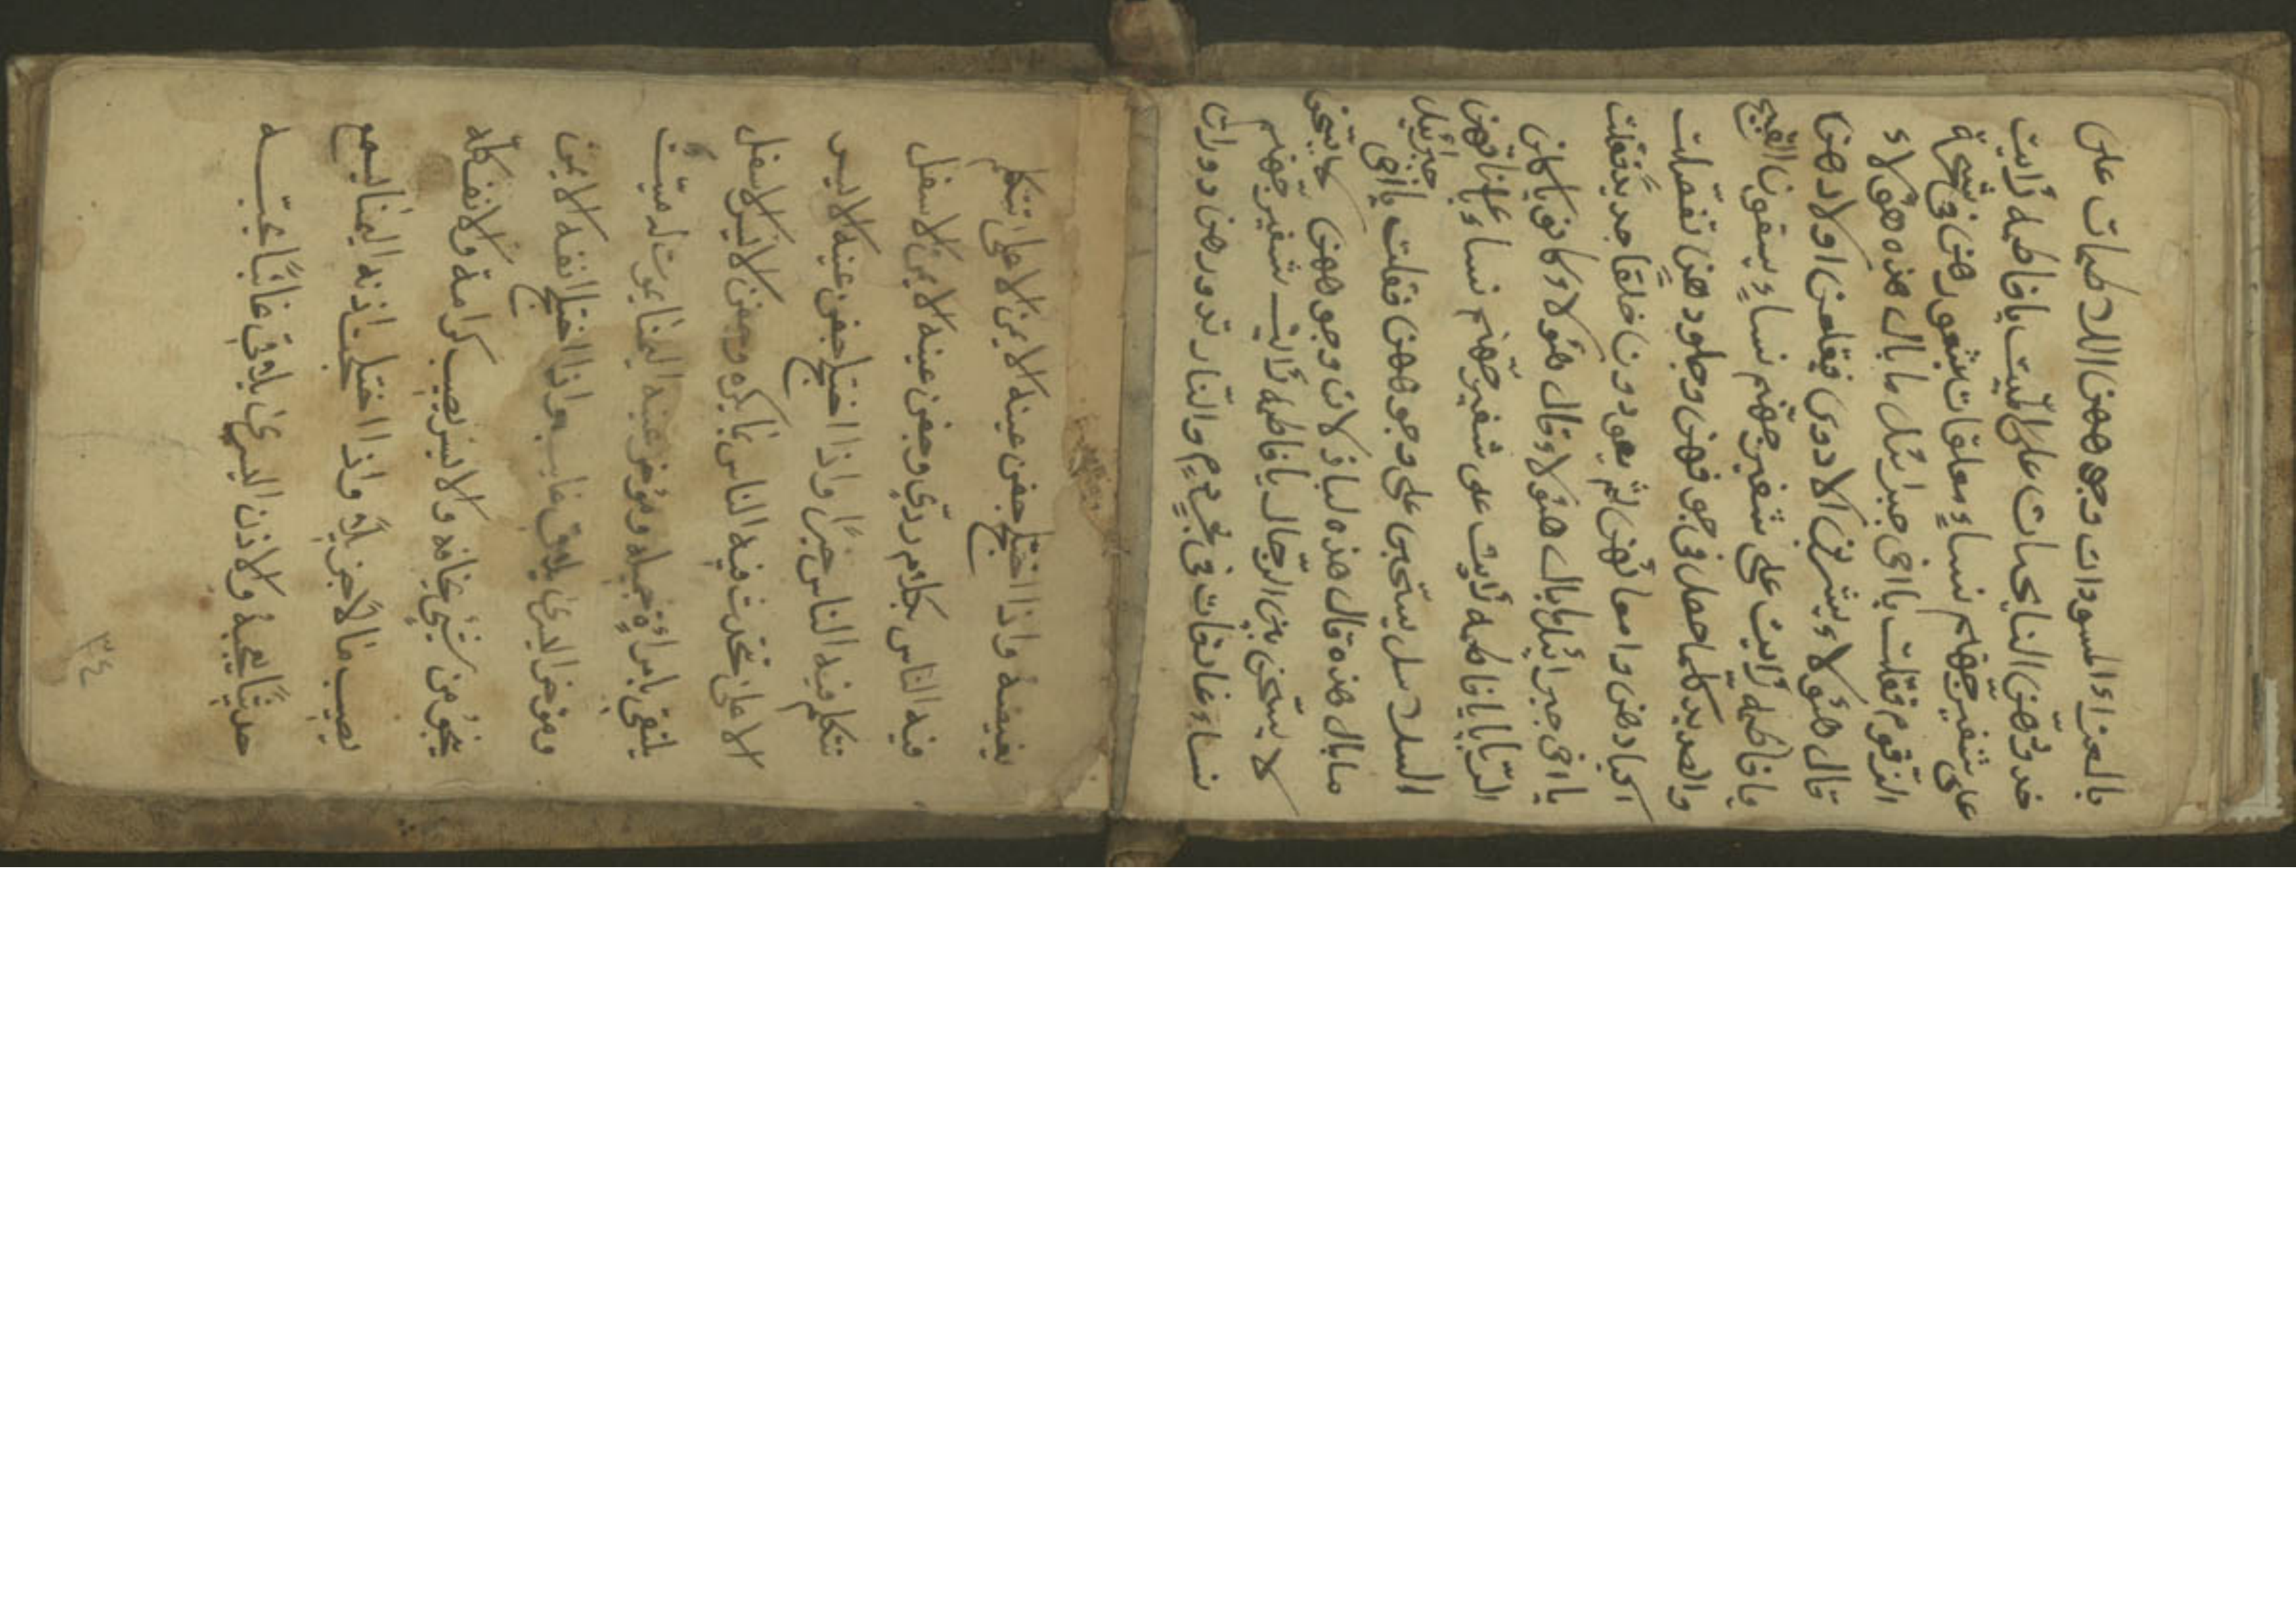 بالعزاء المسودات وجوههن اللاطمات على
خدودهّن النايحات على الميّت يا فاطمه رُأيت
على شفير جهّنم نساءٍ معلقات بشعورهن في شجرة
الزقوم فقلت يا اخي جبرائيل ما بال هذه هؤلاء
قال هؤلاء يشربن الادوى فيقلعن اولادهن
يا فاطمه رُأيت على شفير جهنّم نساءٍ يسقون القيح
والصديد كلما حصل في جوفهن وجلودهن تفصّلت
اكبادهن وامعائهن ثم يعودون خلقا جديدٍ فقلت
يا اخي جبرائيل ما بال هؤلاء قال هؤلاء كانو ياكلن
الرّبا يا فاطمه رُأيت على شفير جهّنم نساء باعناقهن
السلاسل يسحبن على وجوههن فقلت يا اخي جبرئيل
ما بال هذه قال هذه لباذلات وجوههن لا يستحن
لا يستحن من الرجال يا فاطمه رُأيت شفير جهنّم
نساء في حميم والنّار تدورهن دورات
يغيضه واذا اختلج جفن عينه الايمن الاعلى تتكلم
فيه الناس بكلام ردّي وجفن عينه الايمن الاسفل
تتكلم فيه الناس خيرًا واذا اختلج جفن عينه الايسر
الاعلى تتحدث فيه الناس بما يكره وجفن الايسر الاسفل
يلتقي بامراةٍ جميله وموخر عينه اليمنا يموت له ميّت
وموخر اليسرى يلاقي غايب واذا اختلج انفه الايمن
ينجو من شيءٍ يخافه والايسر يصيب كرامة والانف كله
يصيب مالاً جزيلاً واذا اختلجت اذنه اليمنا يسمع
حديثًا يعجبه والاذن اليسرى يلاقي غائبًا
٣٤